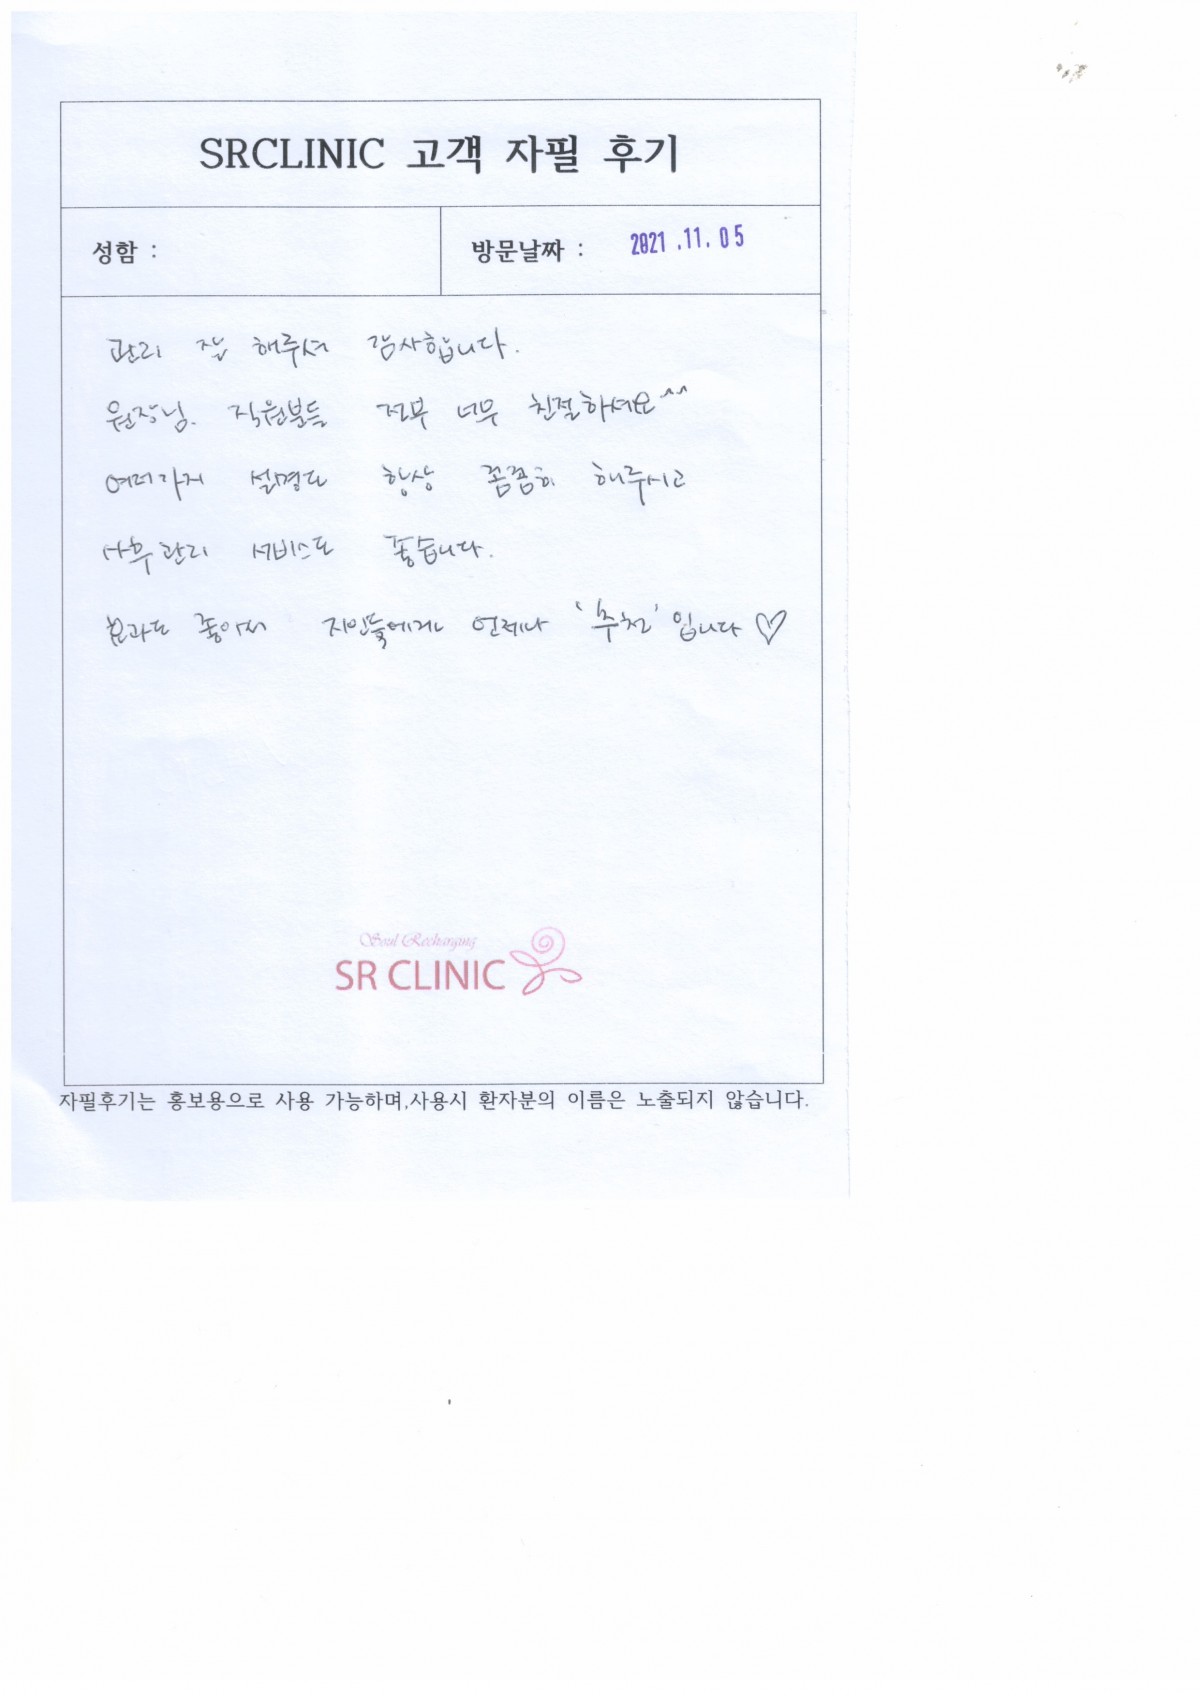 SRCLINIC 고객 자필 후기
성함 :
방문날짜 : 2021.11.05
관리 잘 해주셔 감사합니다.
원장님. 직원분들 전부 너무 친절하셔요^^
여러가지 설명도 항상 꼼꼼히 해주시고
사후관리 서비스도 좋습니다.
효과도 좋아서 지인들에게 언제나 '추천' 입니다 ♡
Soul Recharging
SR CLINIC
자필후기는 홍보용으로 사용 가능하며,사용시 환자분의 이름은 노출되지 않습니다.